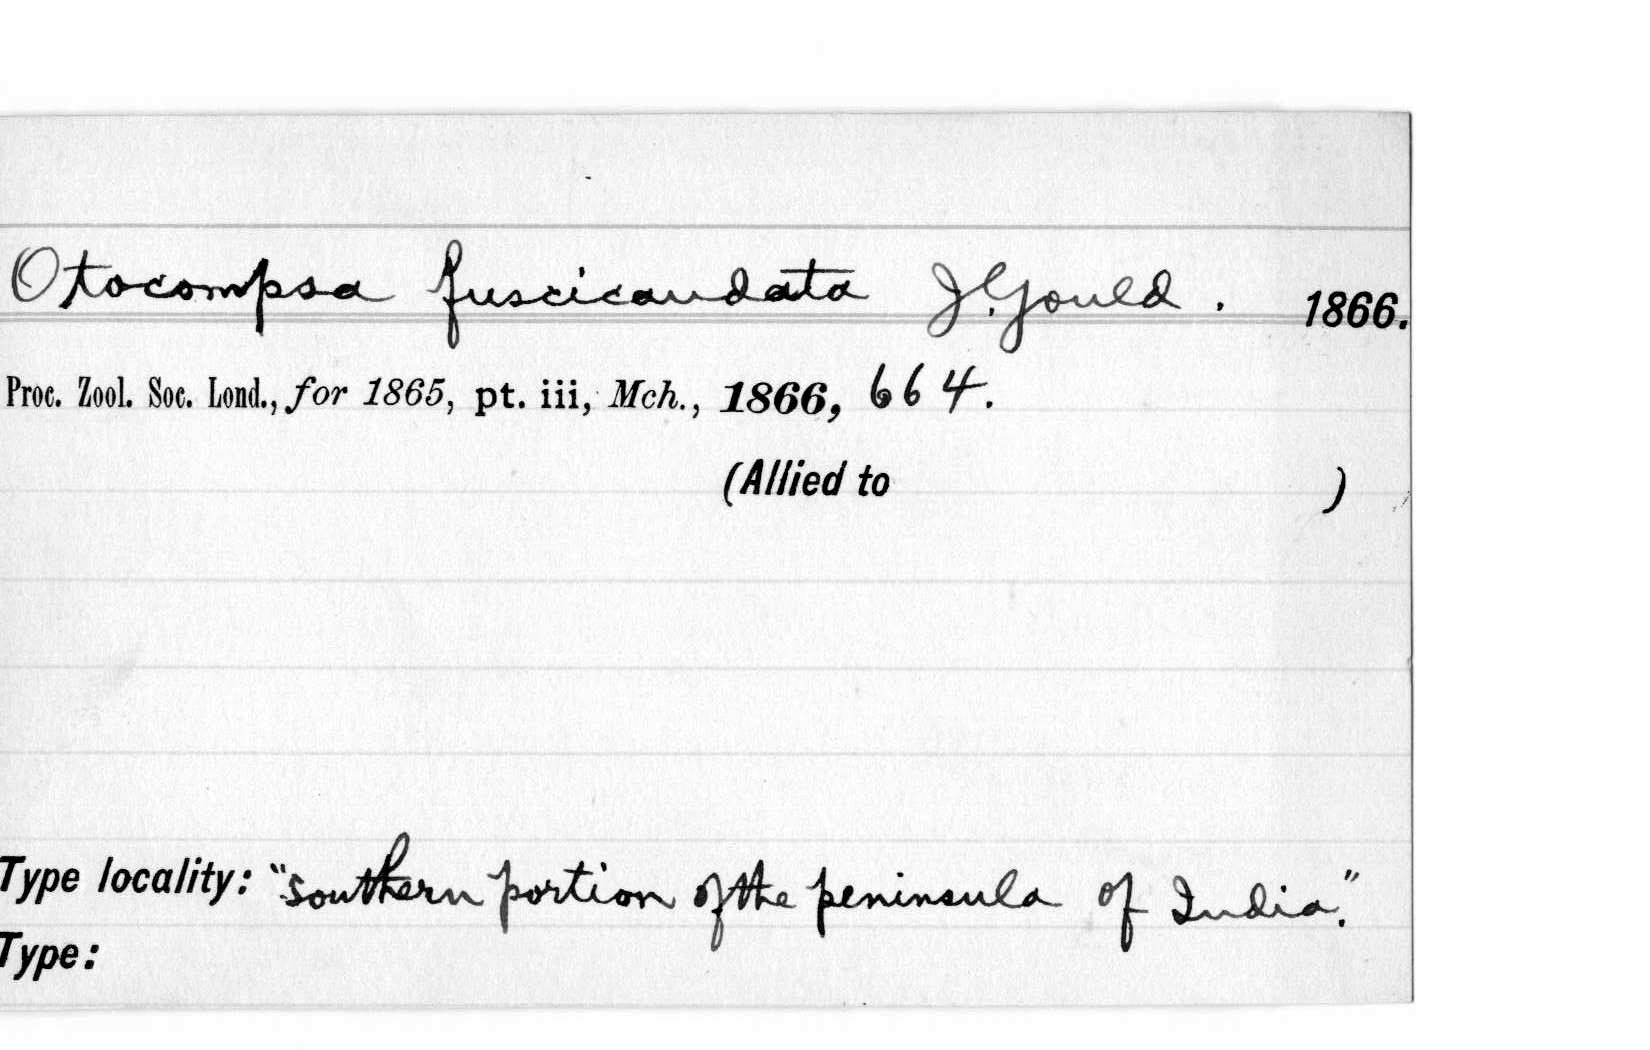 Otocompsa fuscicaudata J. Gould. 1866.
Proc. Zool. Soc. Lond., for 1865, pt. iii, Mch., 1866, 664.
(Allied to )
Type locality: "southern portion of the peninsula of India."
Type: